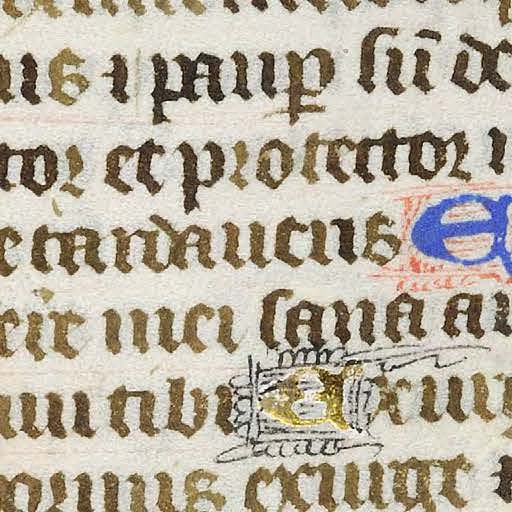 us ⁊ paup̲ sū de
tor et protector
e tardaueris E
ere mei sana a
um tibi Exur
exurge